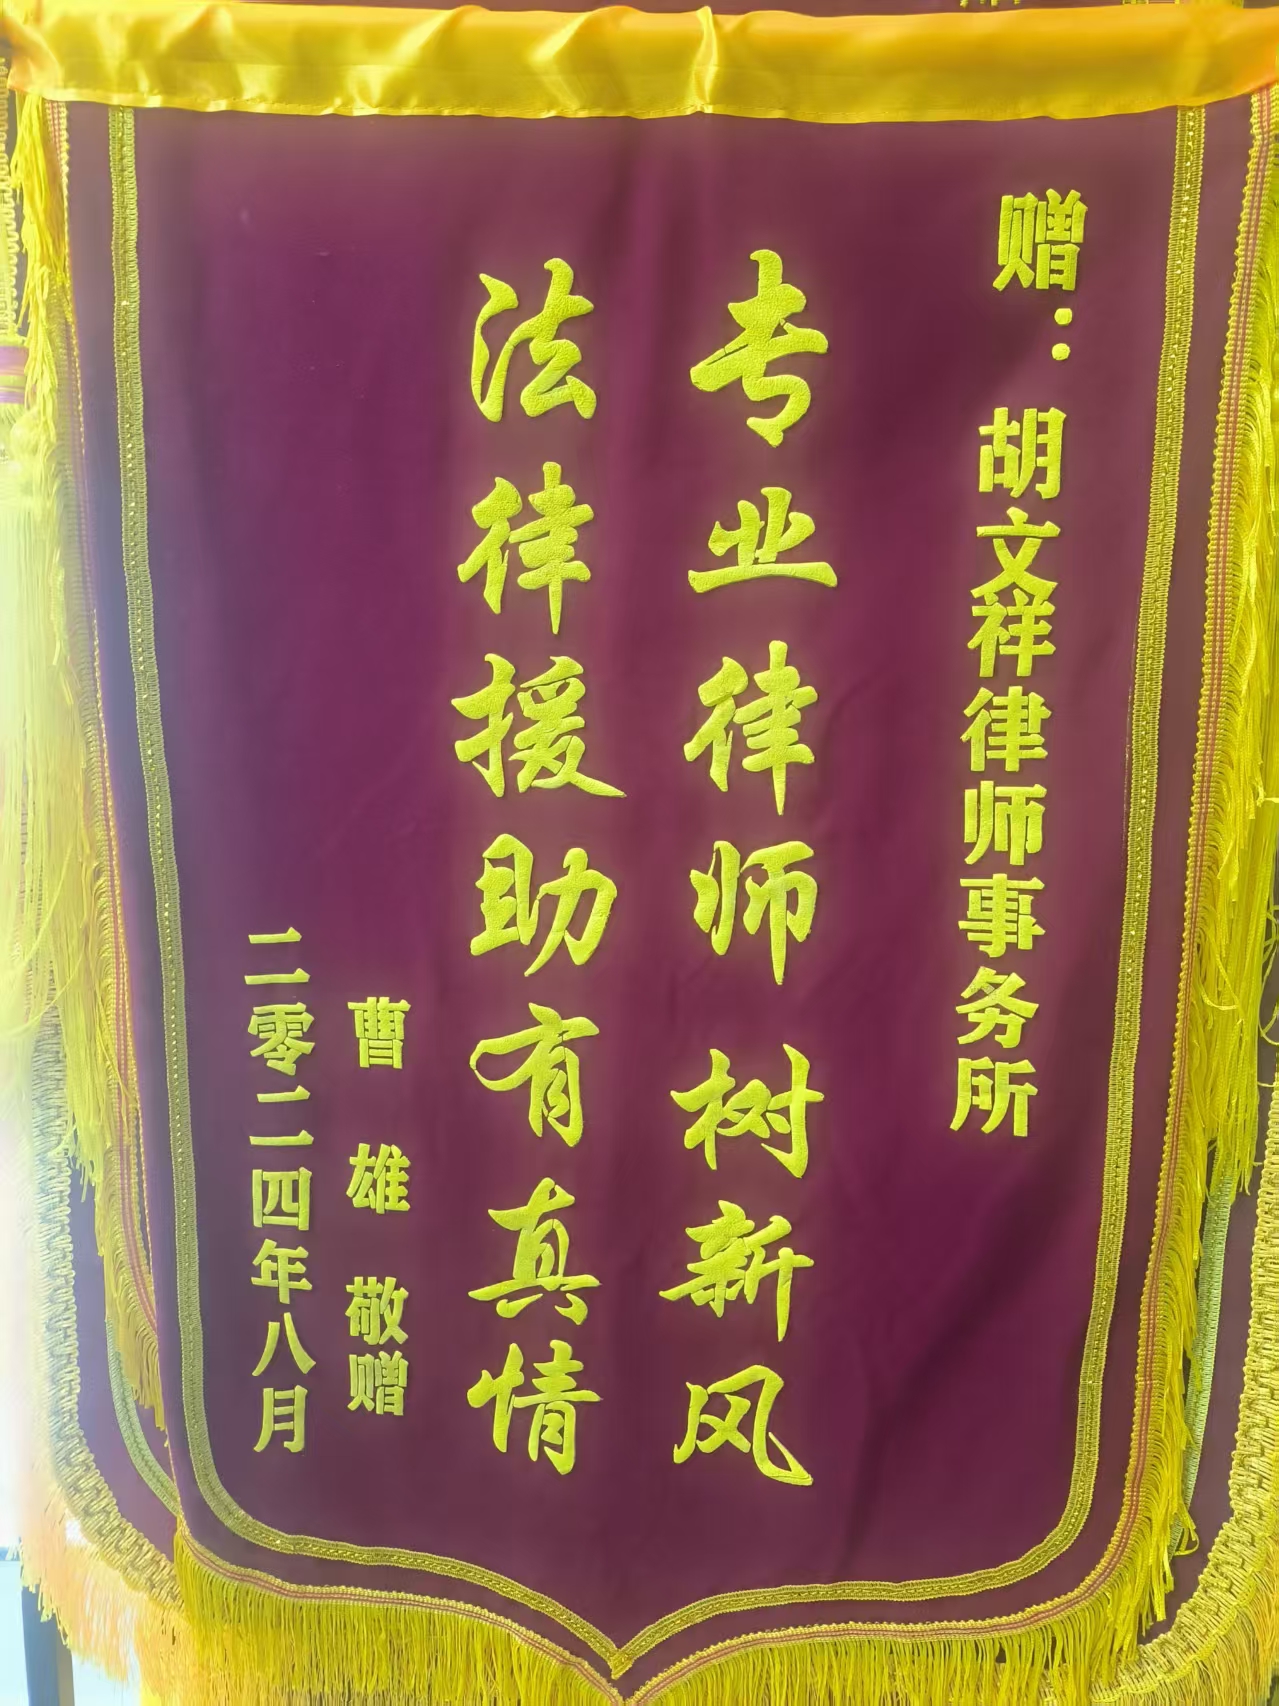 赠：胡文祥律师事务所
专业律师树新风
法律援助有真情
曹雄敬赠
二零二四年八月